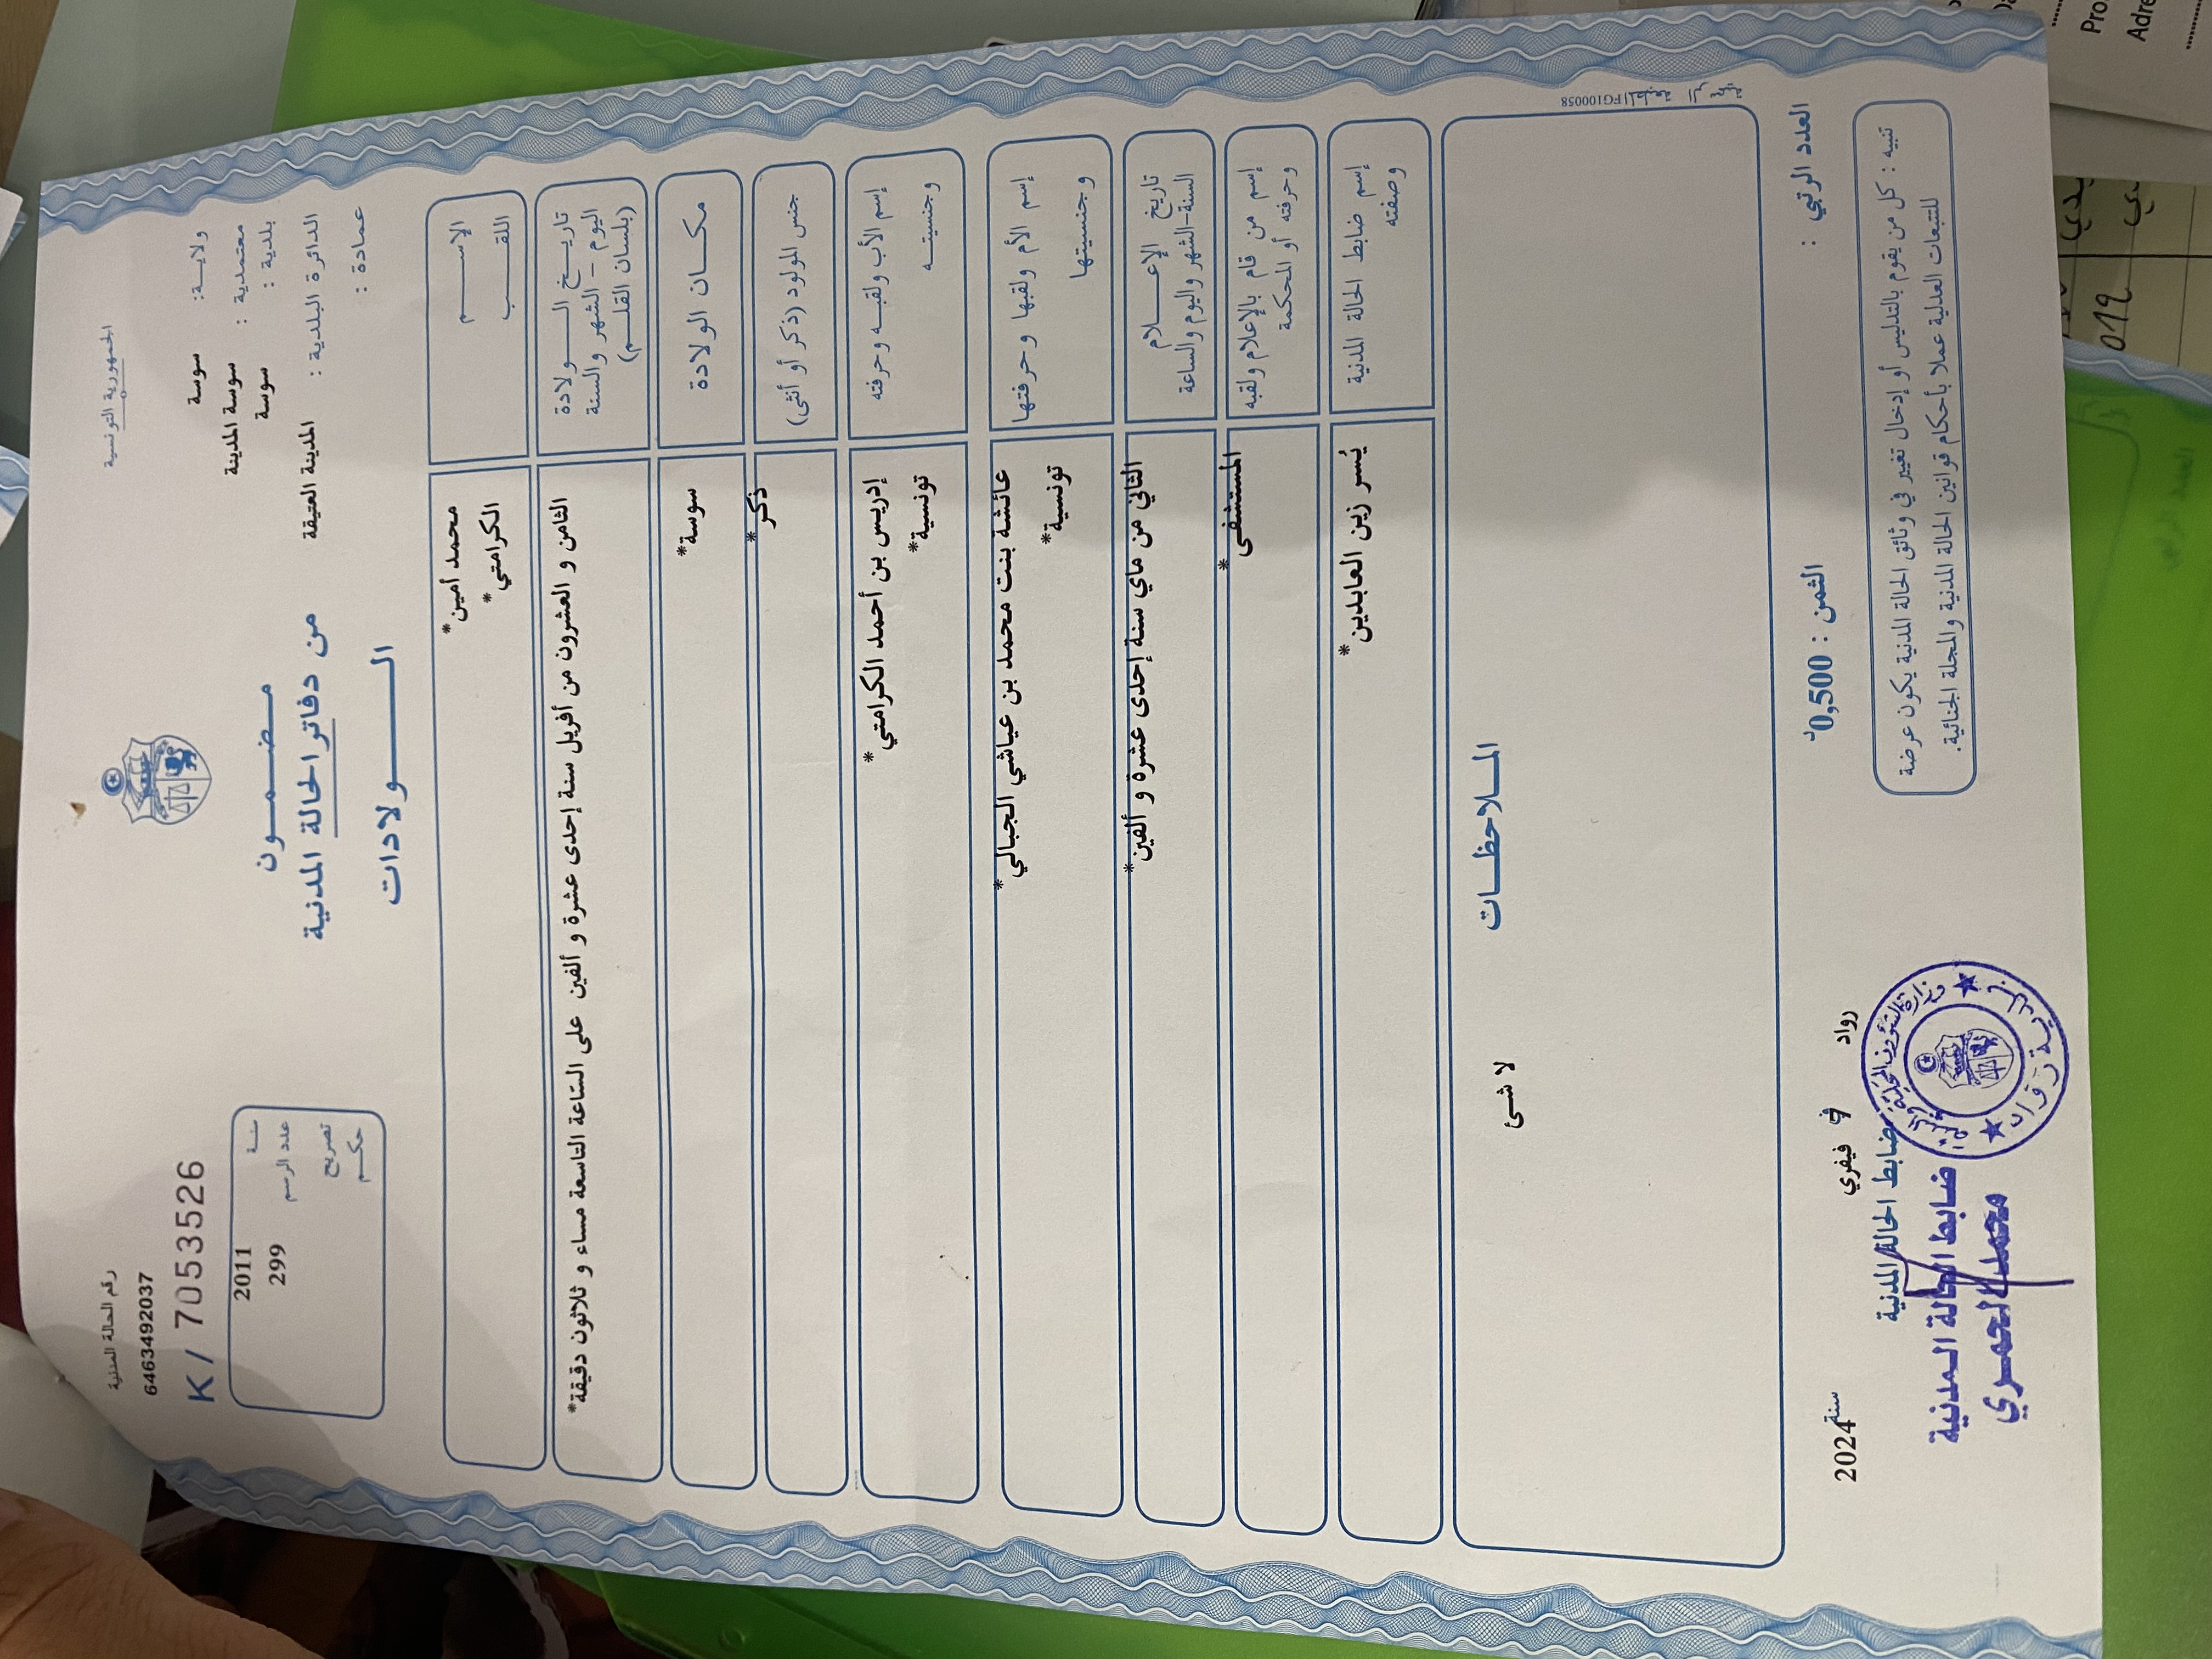 الجمهورية التونسية
ولايـــة: سوسة
معتمدية : سوسة المدينة
بلدية : سوسة
الدائرة البلدية : المدينة العتيقة
عمادة :
رقم الحالة المدنية
6463492037
K / 7053526
سنـــة 2011
عدد الرسم 299
تصريح
حكـــم
مـضـــمـــون
من دفاتر الحالة المدنية
الـــــولادات
الإســــم
اللقــــب
محمد أمين*
الكرامتي*
تاريـــخ الــــولادة
اليوم – الشهر والسنة
(بلسان القلـــم)
الثامن و العشرون من أفريل سنة إحدى عشرة و ألفين على الساعة التاسعة مساء و ثلاثون دقيقة*
مكـــان الولادة
سوسة*
جنس المولود (ذكر أو أنثى)
ذكر*
إسم الأب ولقبـــه وحرفته
وجنسيتـــه
إدريس بن أحمد الكرامتي*
تونسية*
إسم الأم ولقبها وحرفتها
وجنسيتها
عائشة بنت محمد بن عياشي الجبالي*
تونسية*
تاريخ الإعـــــلام
السنة-الشهر واليوم والساعة
الثاني من ماي سنة إحدى عشرة و ألفين*
إسم من قام بالإعلام ولقبه
وحرفته أو المحكمة
المستشفى*
إسم ضابط الحالة المدنية
وصفته
يُسر زين العابدين*
المــلاحظــات
لا شئ
FG100058
العدد الرتبي :
الثمن : 0,500د
رواد في فيفري سنة 2024
تنبيه : كل من يقوم بالتدليس أو إدخال تغيير في وثائق الحالة المدنية يكون عرضة
للتتبعات العدلية عملا بأحكام قوانين الحالة المدنية والمجلة الجنائية.
ضابط الحالة المدنية
ضابط الحالة المدنية
محمد الحمري
وزارة الشؤون المحلية
Pro
Adre
019